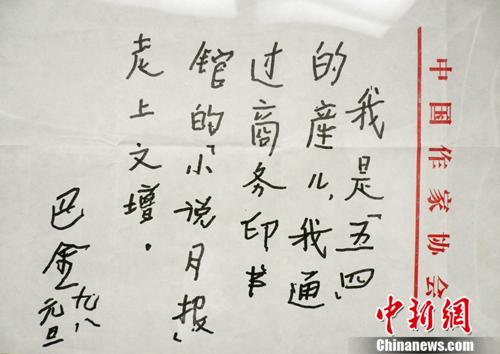 中国作家协会
我是「五四」
的産儿，我通
过商务印书
館的「小说月报」
走上文壇.
巴金 九八
元旦
中新網
Chinanews.com